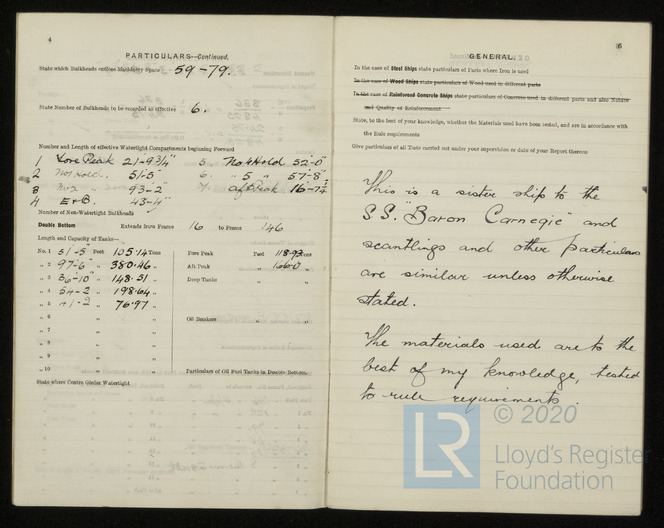 4
PARTICULARS—Continued.
State which Bulkheads enclose Machinery Space 59-79.
State Number of Bulkheads to be recorded as effective 6.
Number and Length of effective Watertight Compartments beginning Forward
1 Fore Peak 21-9¾" 5. No 4 Hold 52-0"
2 No 1 Hold. 51-5" 6. " 5 " 57-8"
3 No 2 93-2 7. aft Peak 16-7½
4 E & B. 43-4"
Number of Non-Watertight Bulkheads
Double Bottom Extends from Frame 16 to Frame 146
Length and Capacity of Tanks—
No. 1 51-5" Feet 105.14 Tons Fore Peak Feet 118.93 Tons
„ 2 97-6" „ 380.46 „ Aft Peak „ 166.0 „
„ 3 36-10" „ 148.51 „ Deep Tanks „ „
„ 4 54-2 „ 198.64 „
„ 5 41-2 „ 76.97 „
„ 6 „ „ Oil Bunkers „ „
„ 7 „ „
„ 8 „ „
„ 9 „ „
„ 10 „ „ Particulars of Oil Fuel Tanks in Double Bottom.
State where Centre Girder Watertight
5
GENERAL.
In the case of Steel Ships state particulars of Parts where Iron is used
In the case of Wood Ships state particulars of Wood used in different parts
In the case of Reinforced Concrete Ships state particulars of Concrete used in different parts and also Nature
and Quality of Reinforcement
State, to the best of your knowledge, whether the Materials used have been tested, and are in accordance with
the Rule requirements
Give particulars of all Tests carried out under your supervision or date of your Report thereon
This is a sister ship to the
S.S. "Baron Carnegie" and
scantlings and other particulars
are similar unless otherwise
stated.
The materials used are to the
best of my knowledge, tested
to rule requirements.
© 2020
LR
Lloyd's Register
Foundation